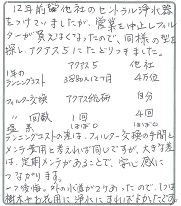 12年前に他社のセントラル浄水器
をつけていましたが、営業を中止しフィルター
が買えなくなったので、同様の型を
探し、アクアス5にたどりつきました。
アクアス5 他社
1年の
ランニングコスト 3880x12ヶ月 4万位
フィルター交換 アクアス総研 自分
〃 回数 1回 4回
塩素 ほぼ0 ほぼ0
ランニングコストの差は、フィルター交換の手間と
メンテ費用と考えれば同じですが、大きな差
は、定期メンテがあることで、安心感に
つながります。
外の水道が2ケあったので、1つは
樹木やお花用に浄水にすればよかったです。